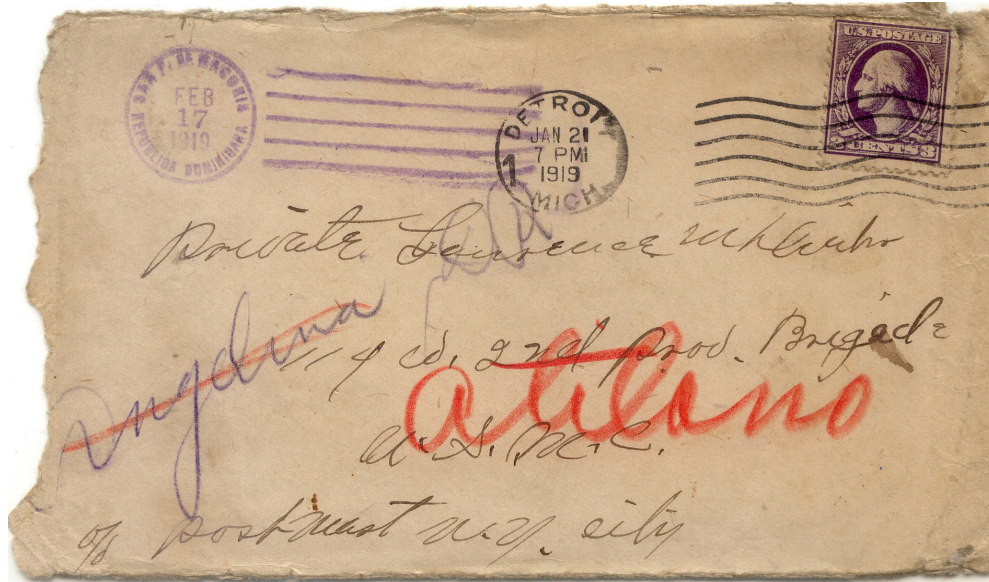 SAN P. DE MACORIS
FEB
17
1919
REPUBLICA DOMINICANA
DETROIT
JAN 21
7 PM
1919
1
MICH.
U.S. POSTAGE
3 CENTS 3
Private Lawrence
Angelina
114 Co. 2nd Prov. Brigade
atilano
U. S. M. C.
c/o Postmast N.Y. City